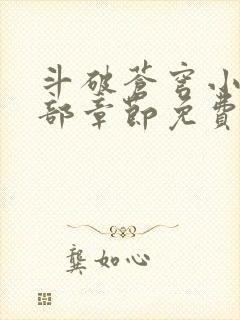 斗破苍穹小
部章节免費
龔如心